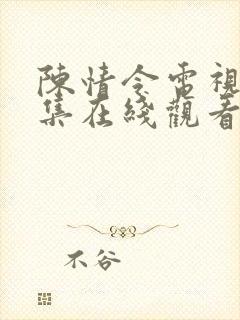 陳情令電視
集在綫觀看
不谷